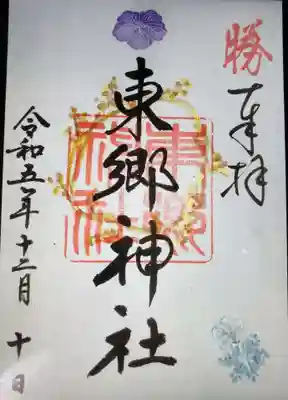 勝
奉拝
東郷神社
東郷神社
令和五年十二月十日